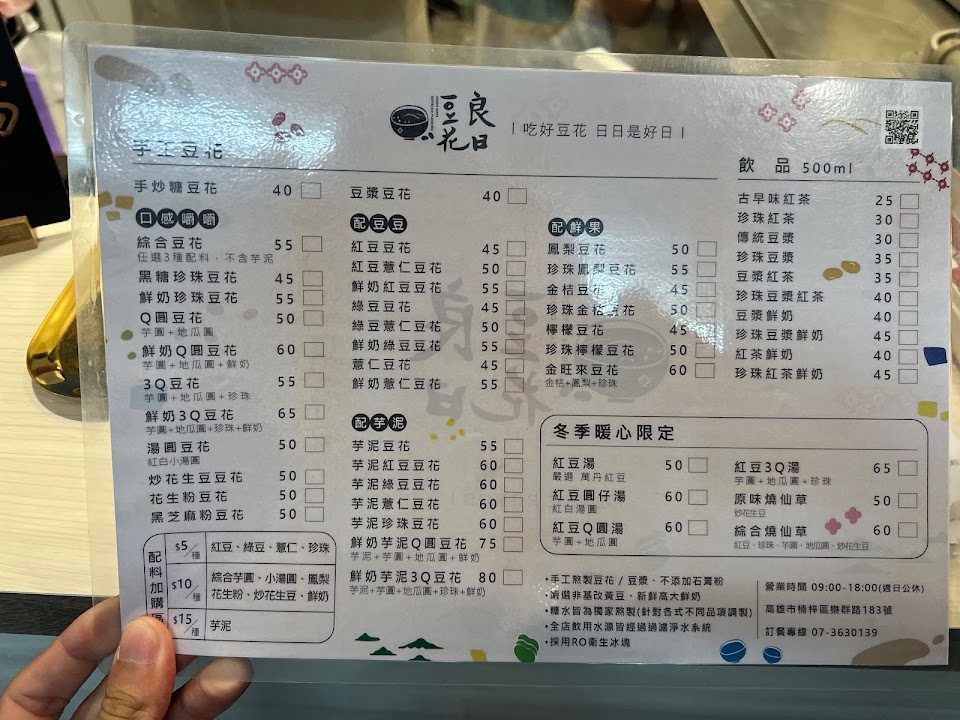 良日
豆花
| 吃好豆花 日日是好日 |
手工豆花
手炒糖豆花 40
口感嚼嚼
綜合豆花 55
任選3種配料．不含芋泥
黑糖珍珠豆花 45
鮮奶珍珠豆花 55
Q圓豆花 50
芋圓+地瓜圓
鮮奶Q圓豆花 60
芋圓+地瓜圓+鮮奶
3Q豆花 55
芋圓+地瓜圓+珍珠
鮮奶3Q豆花 65
芋圓+地瓜圓+珍珠+鮮奶
湯圓豆花 50
紅白小湯圓
炒花生豆豆花 50
花生粉豆花 50
黑芝麻粉豆花 50
配料加購區
$5/種 紅豆、綠豆、薏仁、珍珠
$10/種 綜合芋圓、小湯圓、鳳梨
花生粉、炒花生豆、鮮奶
$15/種 芋泥
豆漿豆花 40
配豆豆
紅豆豆花 45
紅豆薏仁豆花 50
鮮奶紅豆豆花 55
綠豆豆花 45
綠豆薏仁豆花 50
鮮奶綠豆豆花 55
薏仁豆花 45
鮮奶薏仁豆花 55
配芋泥
芋泥豆花 55
芋泥紅豆豆花 60
芋泥綠豆豆花 60
芋泥薏仁豆花 60
芋泥珍珠豆花 60
鮮奶芋泥Q圓豆花 75
芋泥+芋圓+地瓜圓+鮮奶
鮮奶芋泥3Q豆花 80
芋泥+芋圓+地瓜圓+珍珠+鮮奶
配鮮果
鳳梨豆花 50
珍珠鳳梨豆花 55
金桔豆花 45
珍珠金桔豆花 50
檸檬豆花 45
珍珠檸檬豆花 50
金旺來豆花 60
金桔+鳳梨+珍珠
飲品 500ml
古早味紅茶 25
珍珠紅茶 30
傳統豆漿 30
珍珠豆漿 35
豆漿紅茶 35
珍珠豆漿紅茶 40
豆漿鮮奶 40
珍珠豆漿鮮奶 45
紅茶鮮奶 40
珍珠紅茶鮮奶 45
冬季暖心限定
紅豆湯 50
嚴選 萬丹紅豆
紅豆圓仔湯 60
紅白湯圓
紅豆Q圓湯 60
芋圓+地瓜圓
紅豆3Q湯 65
芋圓+地瓜圓+珍珠
原味燒仙草 50
炒花生豆
綜合燒仙草 60
紅豆、珍珠、芋圓、地瓜圓、炒花生豆
•手工熬製豆花 / 豆漿、不添加石膏粉
•嚴選非基改黃豆、新鮮高大鮮奶
•糖水皆為獨家熬製(針對各式不同品項調製)
•全店飲用水源皆經過過濾淨水系統
•採用RO衛生冰塊
營業時間 09:00-18:00(週日公休)
高雄市楠梓區樂群路183號
訂餐專線 07-3630139